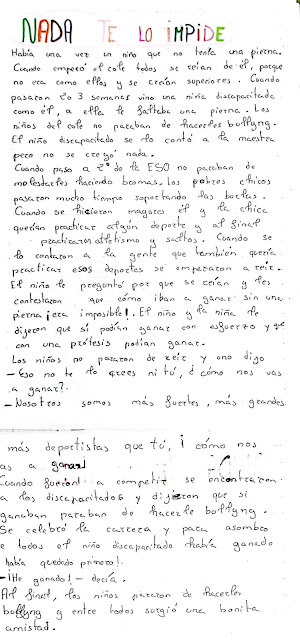 NADA TE LO IMPIDE
Había una vez un niño que no tenía una pierna.
Cuando empezó el cole todos se reían de él, porque
no era como ellos y se creían superiores. Cuando
pasaron lo 3 semanas vino una niña discapacitada
como él, a ella le faltaba una pierna. Los
niños del cole no paraban de hacerles bullyng.
El niño discapacitado se lo contó a la maestra
pero no se creyó nada.
Cuando paso a 1º de la ESO no paraban de
molestarles haciendo bromas. Los pobres chicos
pasaron mucho tiempo soportando las burlas.
Cuando se hicieron mayores él y la chica
querían practicar algún deporte y al final
practicaron atletismo y saltos. Cuando se
lo contaron a la gente que también quería
practicar esos deportes se empezaron a reir.
El niño le preguntó por que se reían y les
contestaron que cómo iban a ganar sin una
pierna ¡era imposible!. El niño y la niña le
dijeron que sí podían ganar con esfuerzo y que
con una prótesis podían ganar.
Los niños no pararon de reir y uno digo
- Eso no te lo crees ni tú, ¿ cómo nos vas
a ganar?.
- Nosotros somos más fuertes, más grandes
más deportistas que tú, ¡ cómo nos
as a ganar!
Cuando fueron a competir se encontraron
a los discapacitados y dijeron que si
ganaban paraban de hacerle bullyng.
Se celebró la carrera y para asombro
e todos el niño discapacitado había ganado
había quedado primero!.
- ¡¡He ganado!- decía.
Al final, los niños pararon de hacerles
bullyng y entre todos surgió una bonita
amistad.